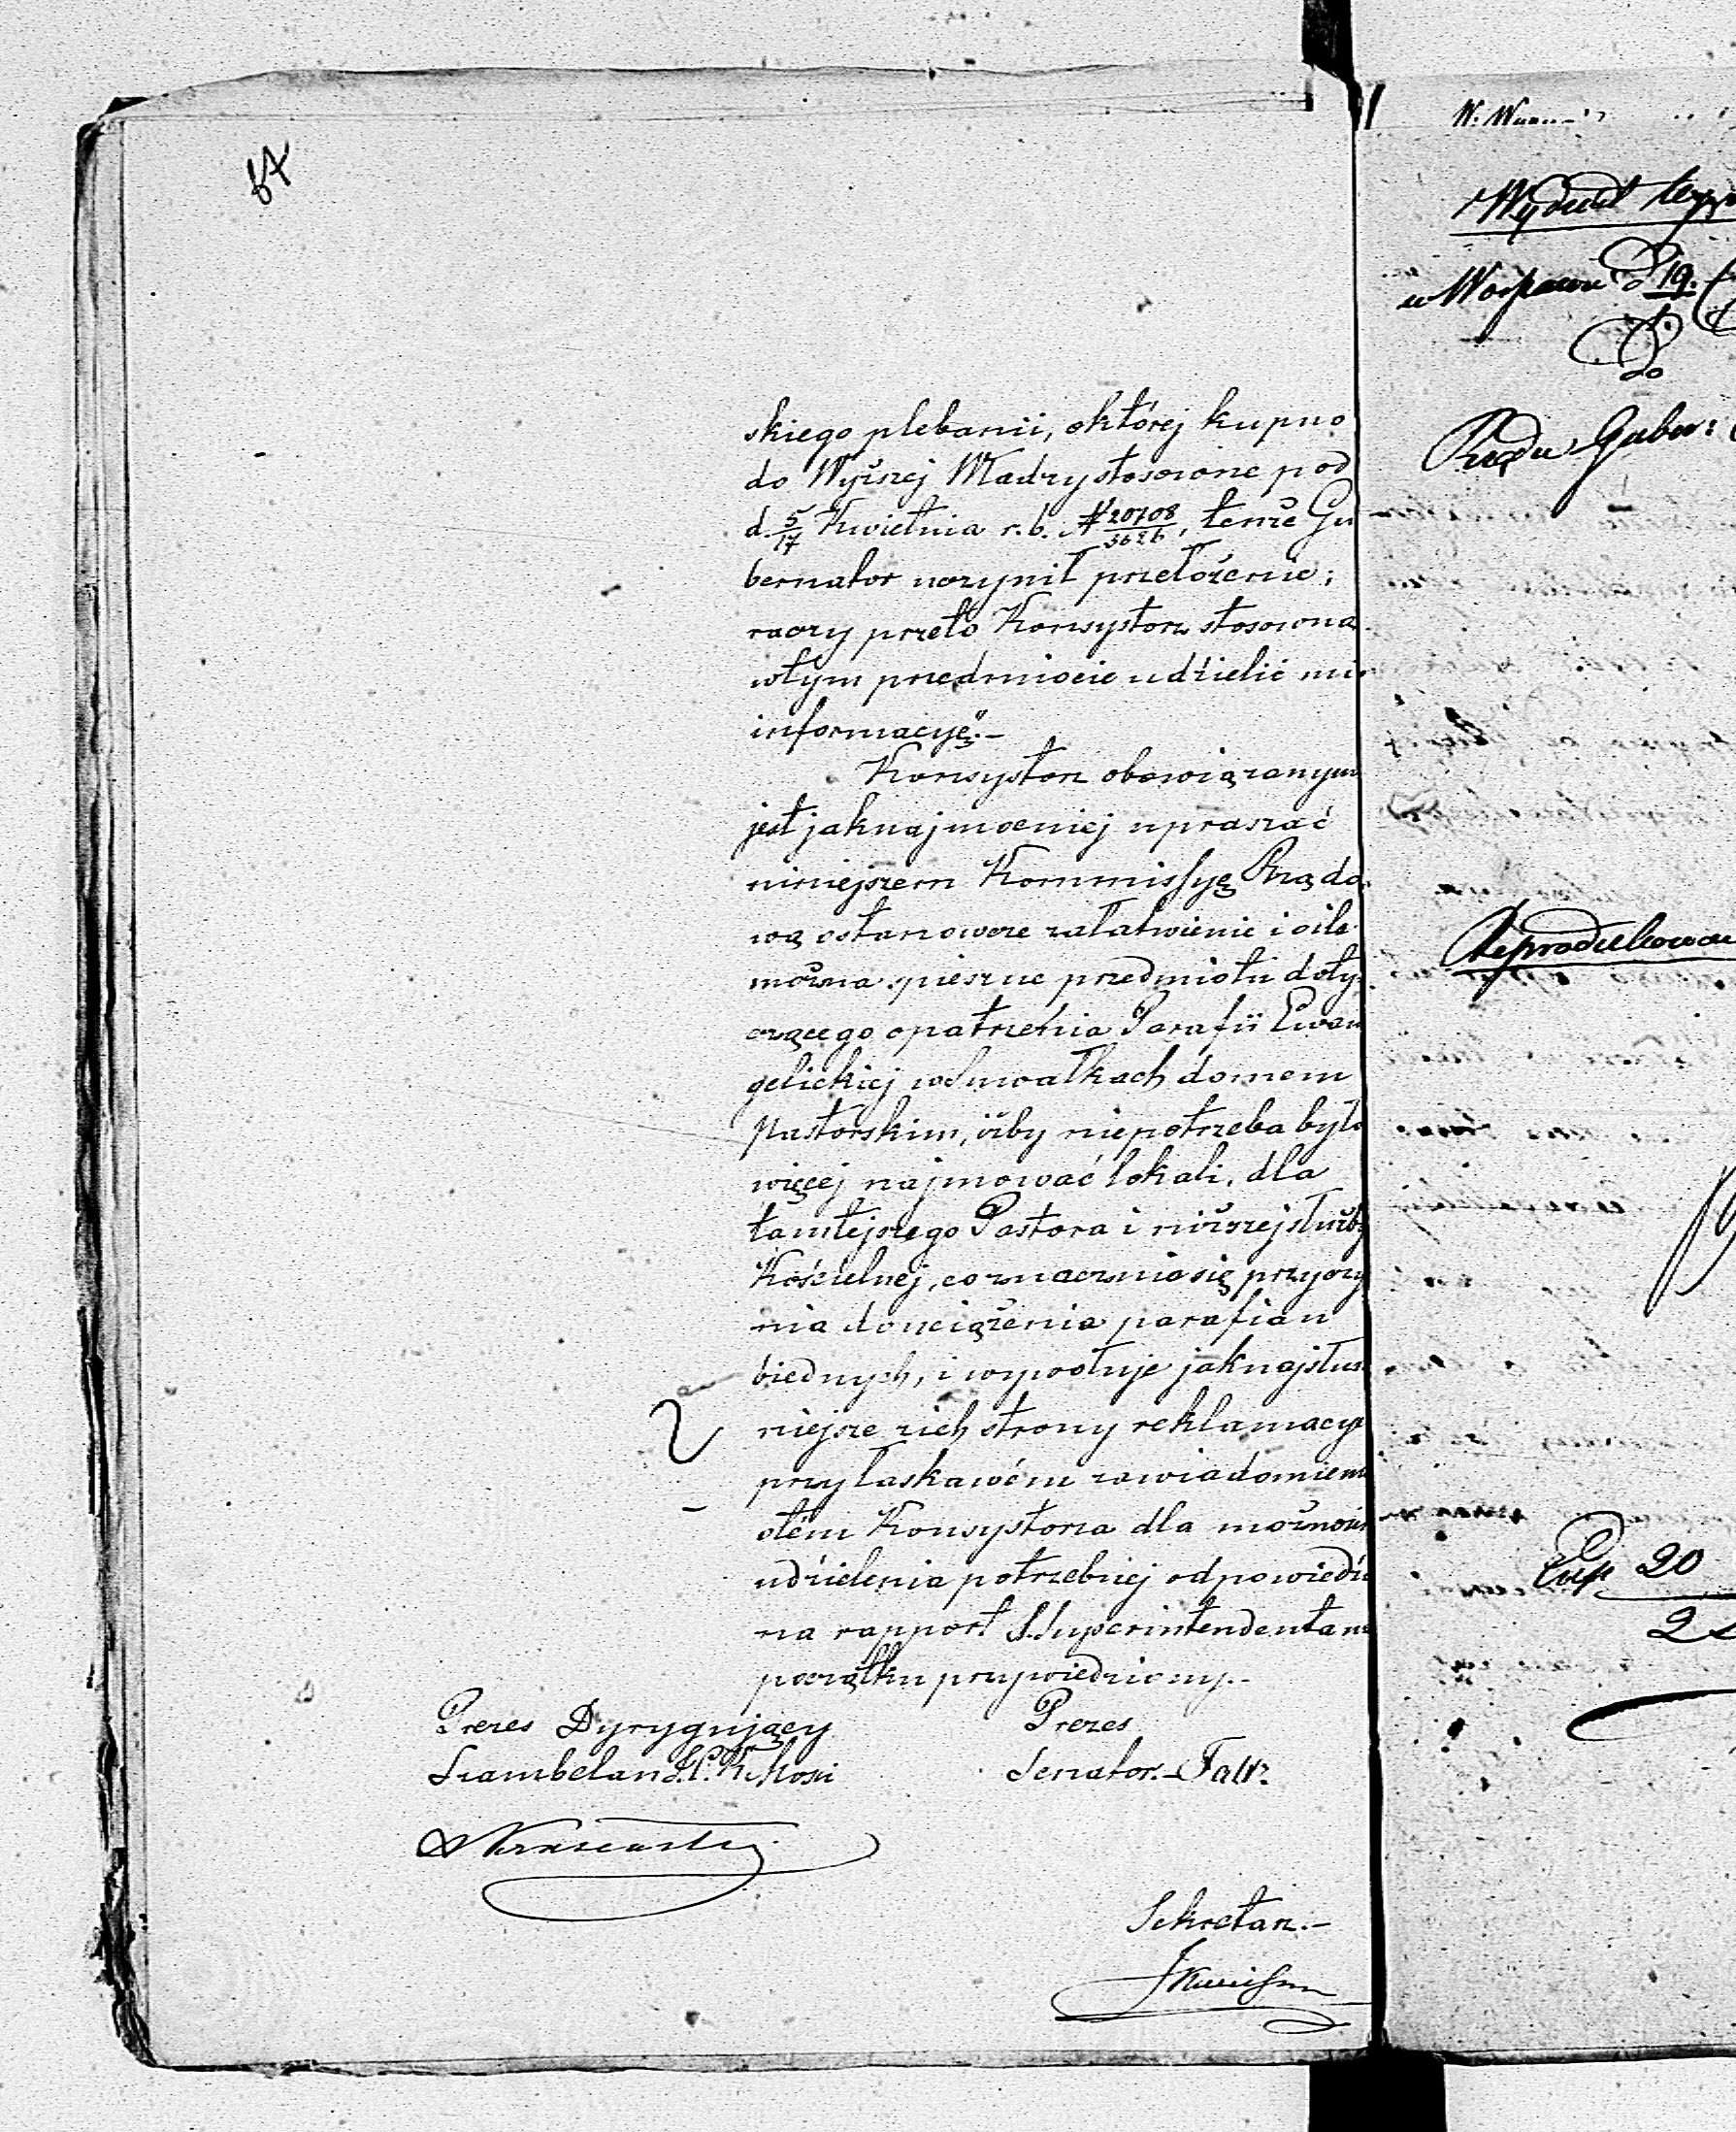 67
skiego plebanii, o której kupno
do Wyższej Władzy stosowne pod
d. 5/17 Kwietnia r. b. N 20708/3626, tenże Gu
bernator uczynił przełożenie;
raczy przeto Konsystorz stosowną
w tym przedmiocie udzielić mi
informacyę".–
Konsystorz obowiązanym
jest jaknajmocniej upraszać
niniejszem Kommissyę Rządo
wą o stanowcze załatwienie i o ile
można spieszne przedmiotu doty
czącego opatrzenia Parafii Ewan
gelickiej w Suwałkach domem
pastorskim, iżby niepotrzeba było
więcej najmować lokali, dla
tamtejszego Pastora i niższej służby
Kościelnej, co znacznie się przyczy
nia do uciążenia parafian
biednych, i wywołuje jaknajsłusz
niejsze z ich strony reklamacye
przy łaskawém zawiadomieniu
o tém Konsystorza dla możności
udzielenia potrzebnej odpowiedzi
na rapport S. Superintendenta na
początku przywiedziony.–
Prezes Dyrygujący
Szambelan
Prezes
Senator.–
Sekretarz.–
Wydział
w Warszawie d 19.
Do
Rządu Guber:
Reprodukowan
Exp 20